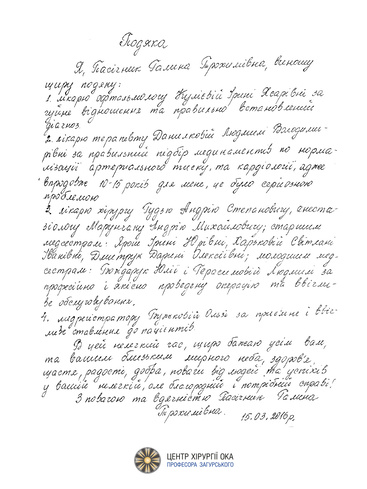 Подяка
Я, Пасічник Галина Трохимівна, виношу
щиру подяку:
1. лікарю офтальмологу Ірині за
чуйне відношення та правильно встановлений
діагноз.
2. лікарю терапевту Данилковій Людмилі Володими-
рівні за правильний підбір медикаментів по норма-
лізації артеріального тиску, та кардіології, адже
впродовж 10-15 років для мене, це було серйозною
проблемою
3. лікарю хірургу Гудзю Андрію Степановичу, анесте-
зіологу Андрію Михайловичу; старшим
медсестрам: Ярой Ірині Юрівні, Харьковій Світлані
Іванівні, Дмитрук Дарині Олексіївні; молодшим мед-
сестрам: Бондарук Юлії і Герасимовій Людмилі за
професійно і якісно проведену операцію та ввічли-
ве обслуговування.
4. медреєстратору Ользі за приємне і ввіч-
ливе ставлення до пацієнтів.
В цей нелегкий час, щиро бажаю усім вам,
та вашим близьким мирного неба, здоров'я,
щастя, радості, добра, поваги від людей та успіхів
у вашій нелегкій, але благородній і потрібній справі!
З повагою та вдячністю Пасічник Галина
Трохимівна. 15.03.2016р.
ЦЕНТР ХІРУРГІЇ ОКА
ПРОФЕСОРА ЗАГУРСЬКОГО